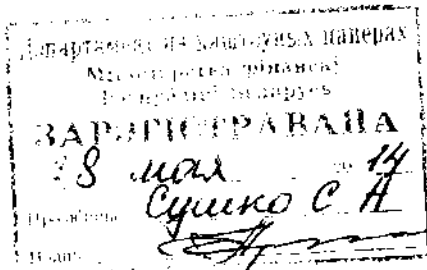 Дэпартамент па каштоўных паперах
Міністэрства фінансаў
Рэспублікі Беларусь
ЗАРЭГІСТРАВАНА
28 мая 20 14
Сушко С А